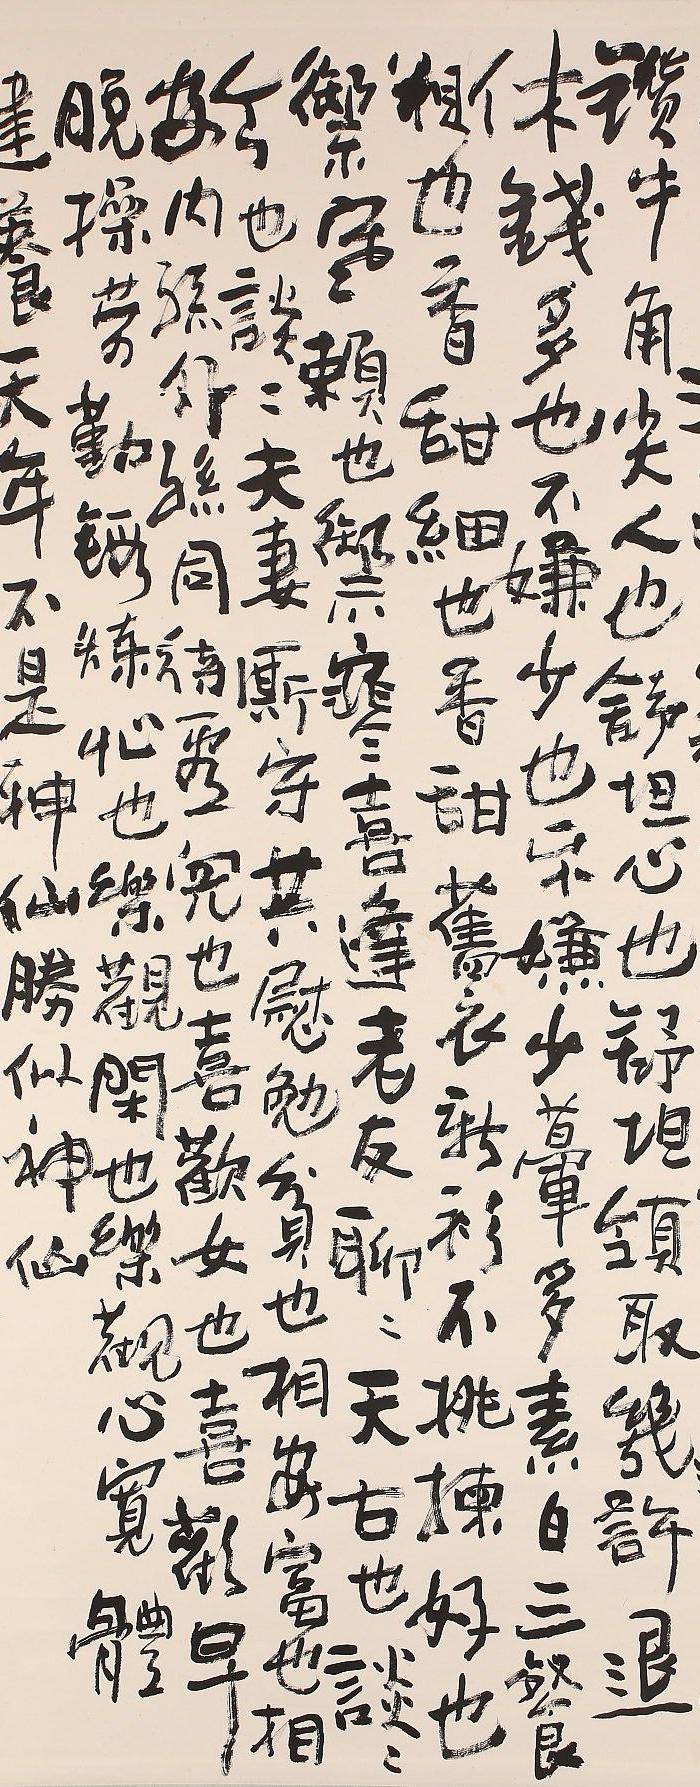 鑽牛角尖人也舒坦心也舒坦領取幾許退
休錢多也不嫌少也不嫌少葷多素自三餐
粗也香甜細也香甜舊衣新衫不挑揀好也
禦寒賴也禦寒喜逢老友聊聊天古也談談
今也談談夫妻厮守共慰勉貧也相安富也相
安內孫外孫同待看兒也喜歡女也喜歡早
晚操勞勤鍛煉忙也樂觀閑也樂觀心寬體
健養天年不是神仙勝似神仙